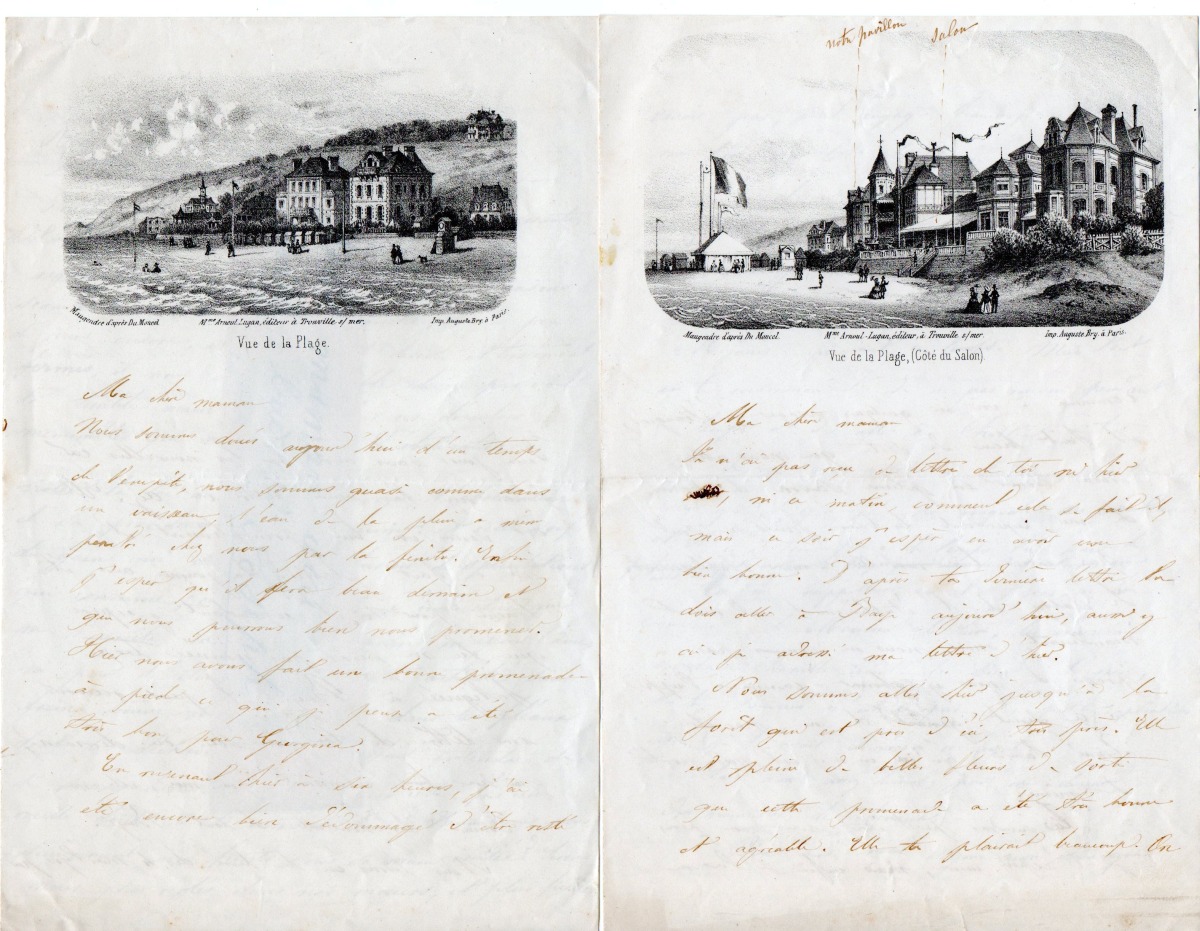 Maugendre d'après Du Moncel.
Mme Arnoul-Lugan, éditeur à Trouville s/mer.
Imp. Auguste Bry à Paris.
Vue de la Plage.
Ma chère maman
Nous sommes doués aujourd'hui d'un temps
de tempête, nous sommes quasi comme dans
un vaisseau, l'eau de la pluie a même
pénétré chez nous par la fenêtre. Enfin
j'espère qu'il fera beau demain et
que nous pourrons bien nous promener.
Hier nous avons fait une bonne promenade
à pied ce qui je pense a été
très bon pour Georgina.
En revenant hier à six heures, j'ai
été encore bien dédommagé d'être resté
notre pavillon
salon
Maugendre d'après Du Moncel.
Mme Arnoul-Lugan, éditeur, à Trouville s/mer
Imp. Auguste Bry, à Paris.
Vue de la Plage, (Côté du Salon).
Ma chère maman
Je n'ai pas reçu de lettre de toi ni hier
, ni ce matin, comment cela se fait il,
mais ce soir j'espère en avoir une
bien bonne. D'après ta dernière lettre tu
dois aller à aujourd'hui, aussi y
ai je adressé ma lettre d'hier.
Nous sommes allés hier jusqu'à la
forêt qui est près d'ici, très près. Elle
est pleine de belles fleurs de sorte
que cette promenade a été très bonne
et agréable. Elle te plairait beaucoup. On